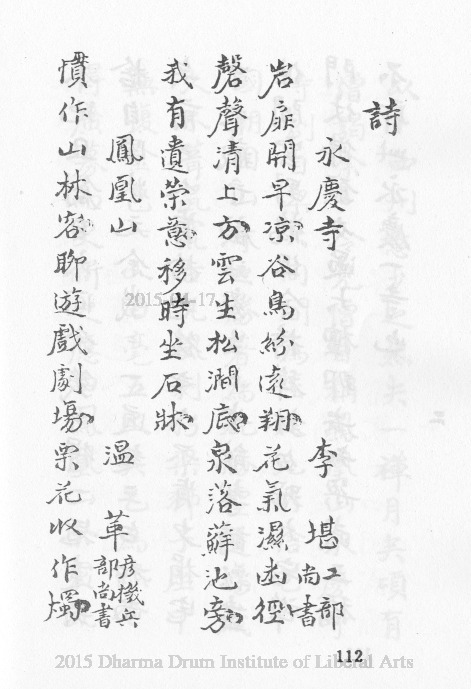 詩
永慶寺 李堪工部尚書
岩扉開早凉谷鳥紛迄翔花氣濕幽徑
磬聲清上方雲生松澗底泉落蘚池旁
我有遺榮意移時坐石牀
鳳凰山 溫革彥機兵部尚書
慣作山林客聊遊戲劇場栗花收作燭
2015-04-17
112
2015 Dharma Drum Institute of Liberal Arts